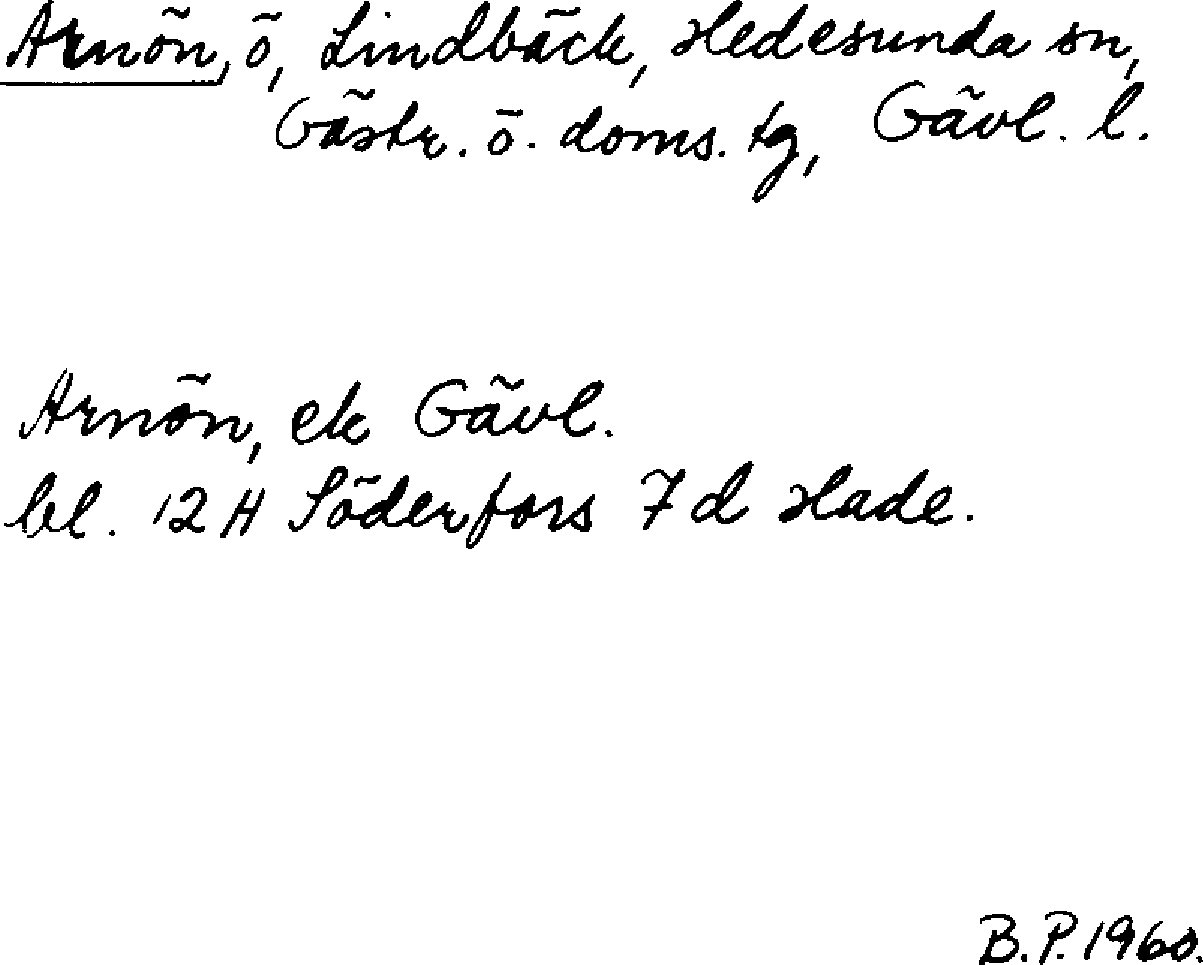 Arnön, ö, Lindbäck, Hedesunda sn,
Gästr. ö. doms. tg, Gävl. l.
Arnön, ek Gävl.
bl. 12 H Söderfors 7 d Hade.
B.P. 1960.